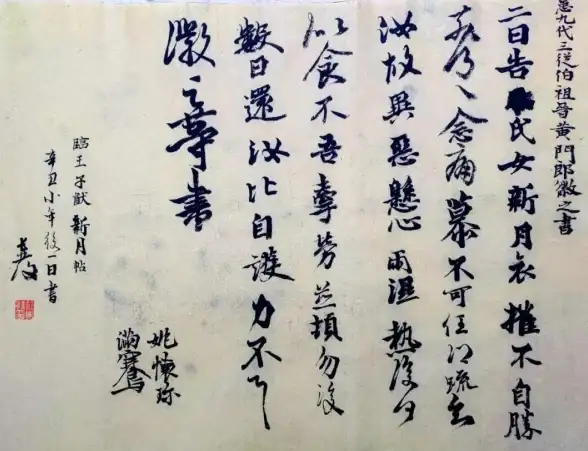 九代三從伯祖晉黃門郎徽之書
二日告氏女新月哀摧不自勝
奈何奈何念痛慕不可任得疏知
汝故異惡懸心雨濕熱復何
似食不吾牽勞並頓勿復
數日還汝比自護力不一一
徽之等書
姚懷珍
滿騫
臨王子猷新月帖
辛丑小年後一日書